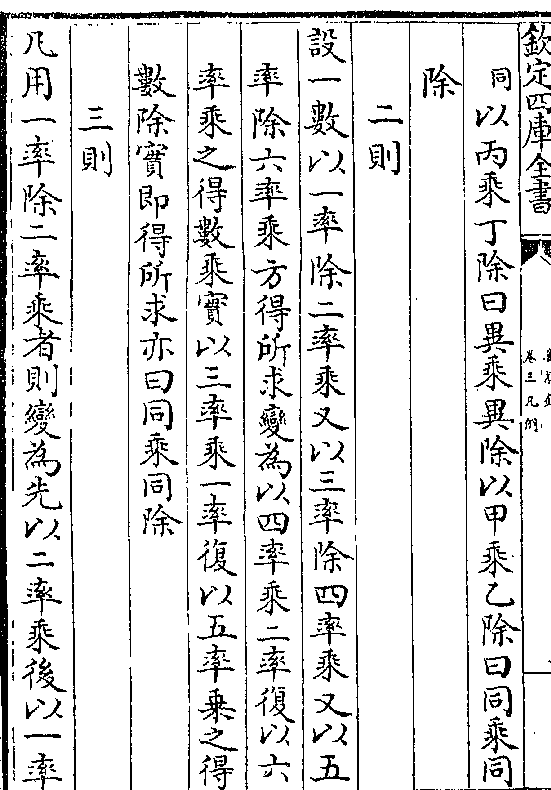 欽定四庫全書
卷三凡例
同以丙乘丁除曰異乘異除以甲乘乙除曰同乘同
除
二則
設一數以一率除二率乘又以三率除四率乘又以五
率除六率乘方得所求變為以四率乘二率復以六
率乘之得數乘實以三率乘一率復以五率乗之得
數除實即得所求亦曰同乘同除
三則
凡用一率除二率乘者則變為先以二率乘後以一率